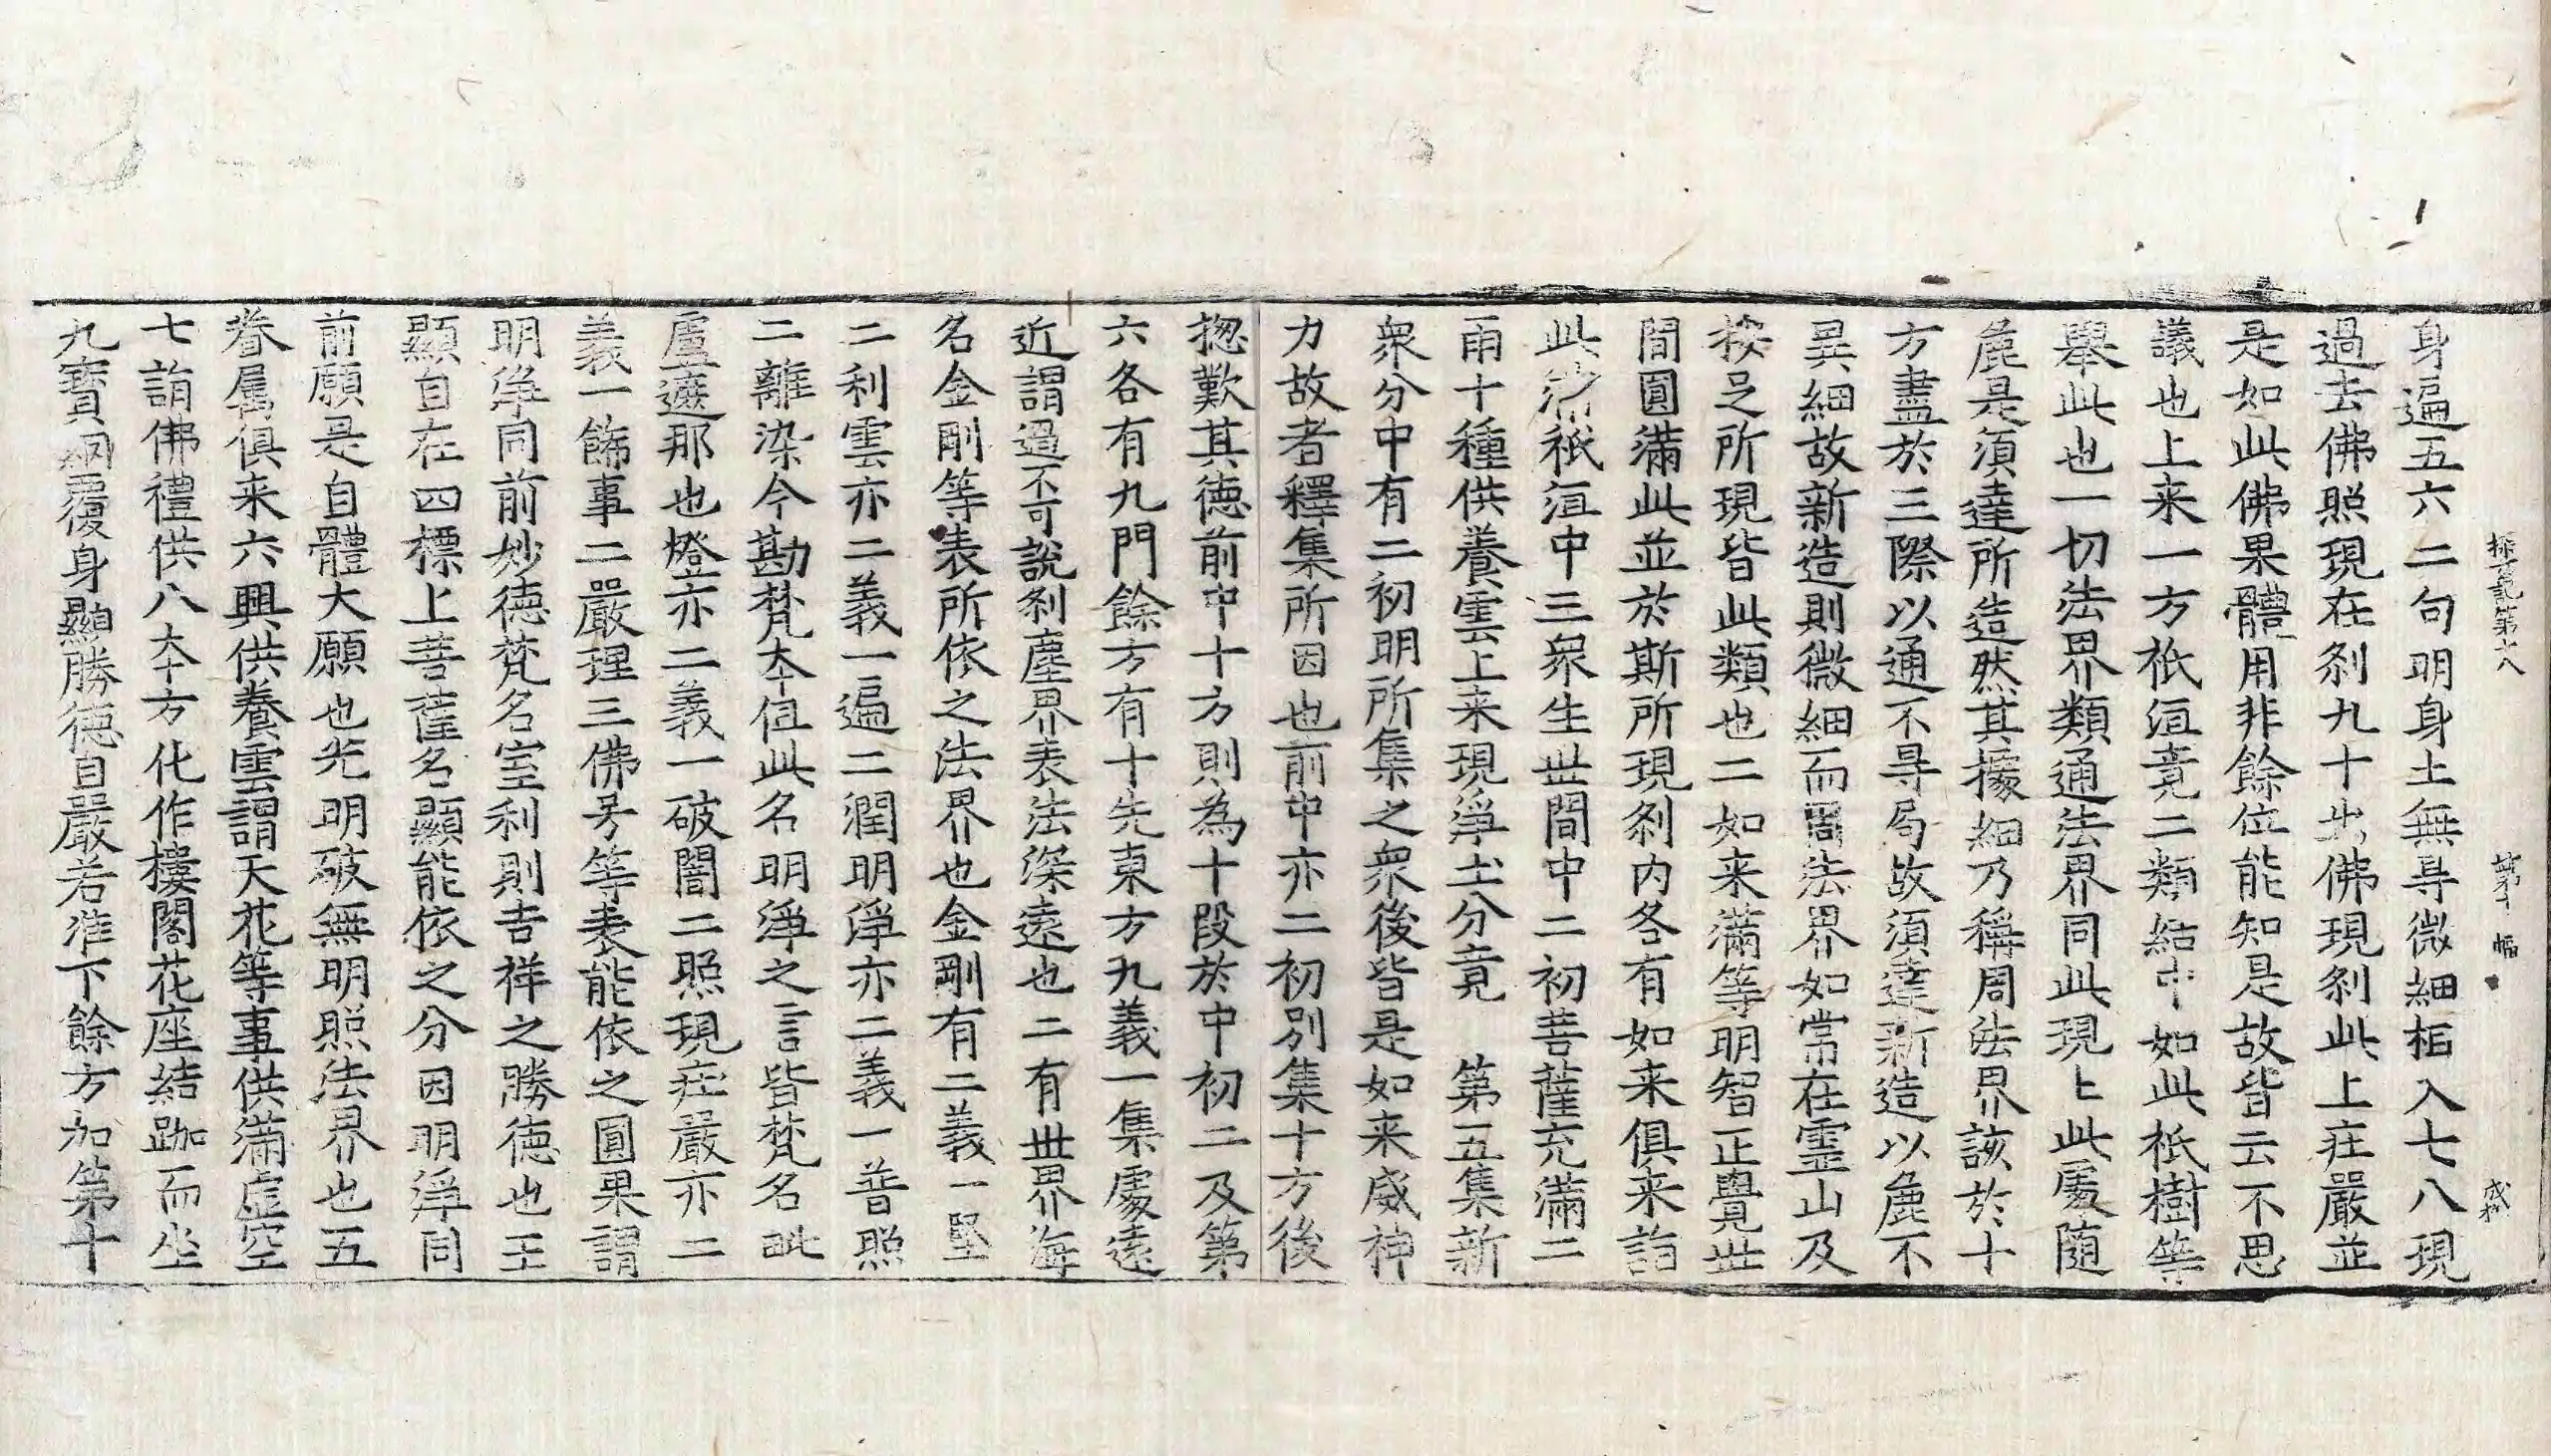 探玄記第十八 第十幅 成桝
身遍五六二句明身土無㝵微細相入七八現
過去佛照現在刹九十出佛現刹此上庄嚴並
是如此佛果體用非餘位能知是故皆云不思
議也上来一方祇洹竟二類結中如此祇樹等
舉此也一切法界類通法界同此現上此處随
麁是須達所造然其據細乃稱周法界該於十
方盡於三際以通不㝵局故須達新造以麁不
異細故新造則微細而周法界如常在靈山及
按足所現皆此類也二如来滿等明智正覺世
間圓滿此並於斯所現刹内各有如来俱来詣
此滿祇洹中三衆生世間中二初菩薩充滿二
雨十種供養雲上来現淨土分竟 第五集新
衆分中有二初明所集之衆後皆是如来威神
力故者釋集所因也前中亦二初別集十方後
揔歎其徳前中十方則為十段於中初二及第
六各有九門餘方有十先東方九義一集處遠
近謂過不可說刹塵界表法深遠也二有世界海
名金剛等表所依之法界也金剛有二義一堅
二利雲亦二義一遍二潤明淨亦二義一普照
二離染今勘梵夲但此名明淨之言皆梵名毗
盧遮那也燈亦二義一破闇二照現庄嚴亦二
義一餝事二嚴理三佛号等表能依之圓果謂
明淨同前妙徳梵名室利則吉祥之勝徳也王
顯自在四標上菩薩名顯能依之分因明淨同
前願是自體大願也光明破無明照法界也五
眷属俱来六興供養雲謂天花等事供滿虛空
七詣佛禮供八夲方化作樓閣花座結跏而坐
九寶網覆身顯勝徳自嚴若准下餘方加第十